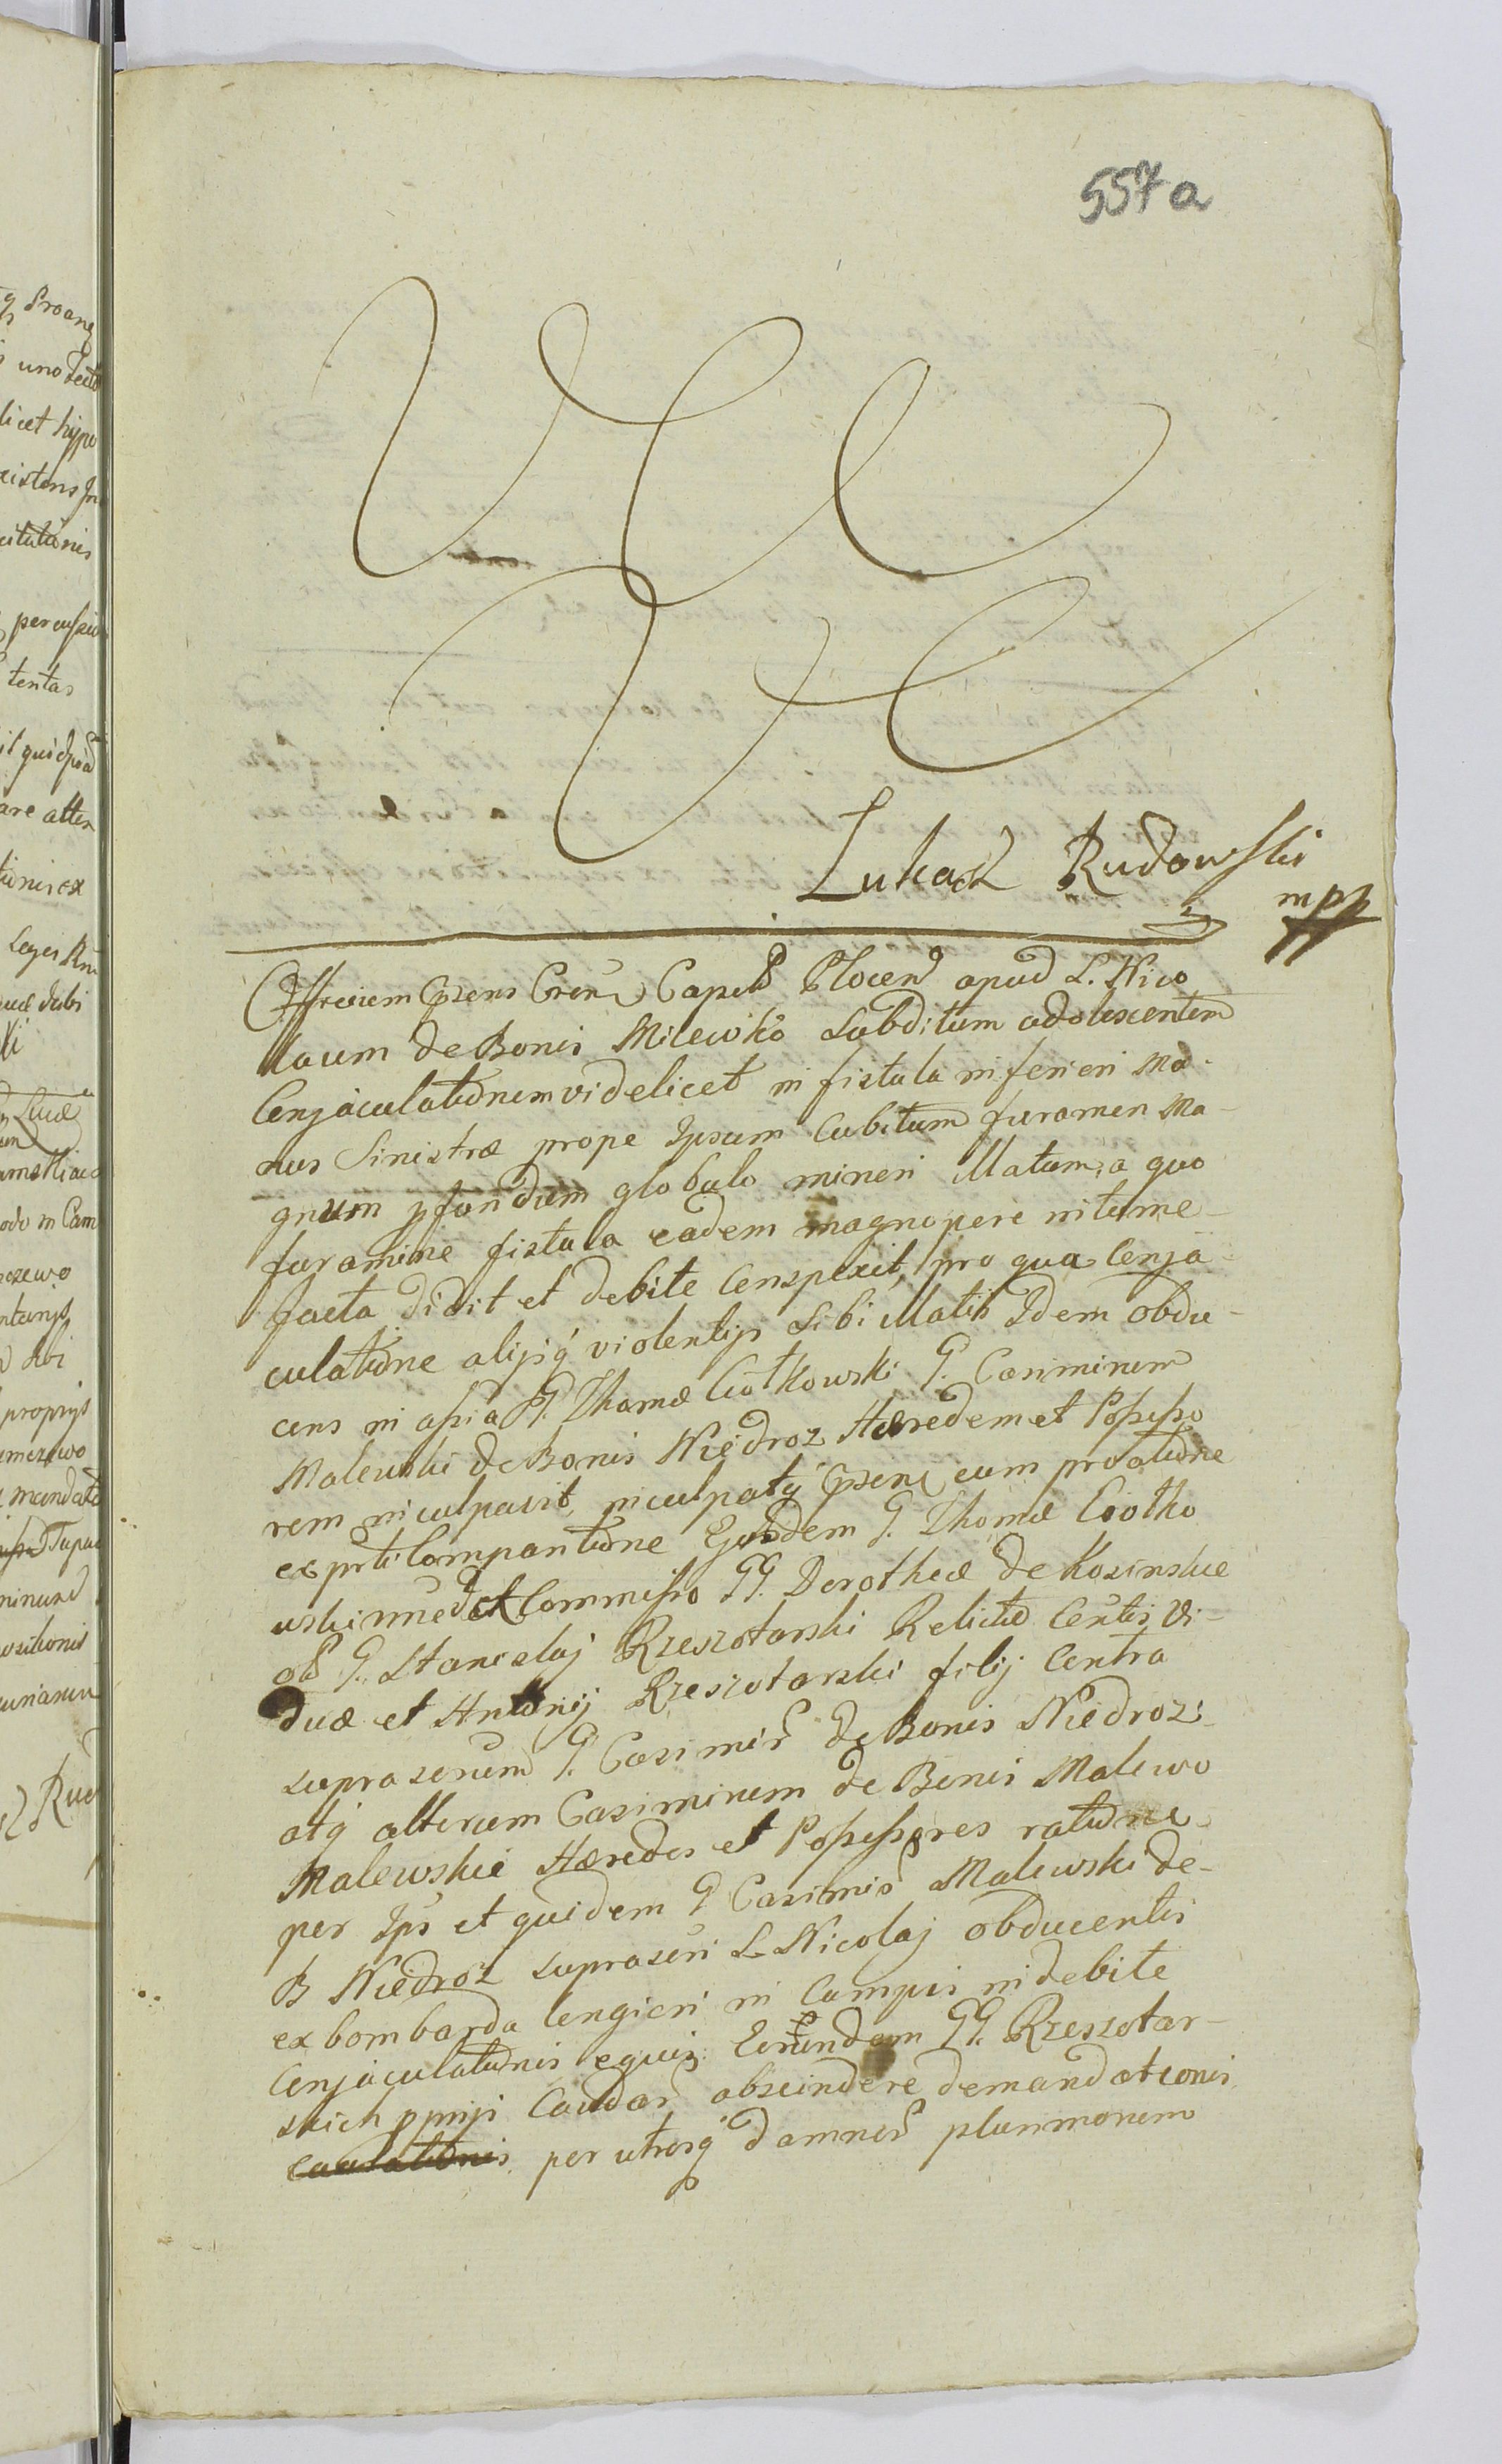 557a
Lukasz Rudowski
mpp
Officium Cpsens Cren Capetl Plocen apud L. Nico
laum de Bonis Milewko Subditum adolescentem
Conjaculationem videlicet in fistula inferiori Ma-
nus Sinistræ prope Ipsum Cubitum furamen Ma-
gnum pfundum globulo mineri Illatum, a quo
furamine fistula eadem magnopere intume-
facta vidit et debite Conspexit, pro qua Conja-
culatione alijsq violentijs Sibi Illatis Idem obdu-
cens in assia G. Thomæ Ciołkowski G. Casimirum
Malewski de Bonis Niedroz Hæredem et Posseso
rem inculpavit, inculpatq Cpsens cum protatione
ex prti Compantione Ejusdem G. Thomæ Ciołko
wski et Commisso GG. Dorotheæ de Kosinskie
olt G. Stanislaj Rzeszotarski Relictæ Contis Vi-
duæ et Antonij Rzeszotarski filij Contra
suprascrium G. Casimir de Bonis Niedrozi
atq alterum Casimirum de Bonis Malewo
Malewskie Hæredes et Possessores ratione
per Ips et quidem G Casimir Malewski de-
B Niedroz suprascri L Nicolaj obducentis
ex bombarda longiori in Campis indebite
Conjaculationis equis Eorundem GG. Rzeszotar-
skich ppriis Caudas abscindere demandationis
per utrosq damnor plurimorum